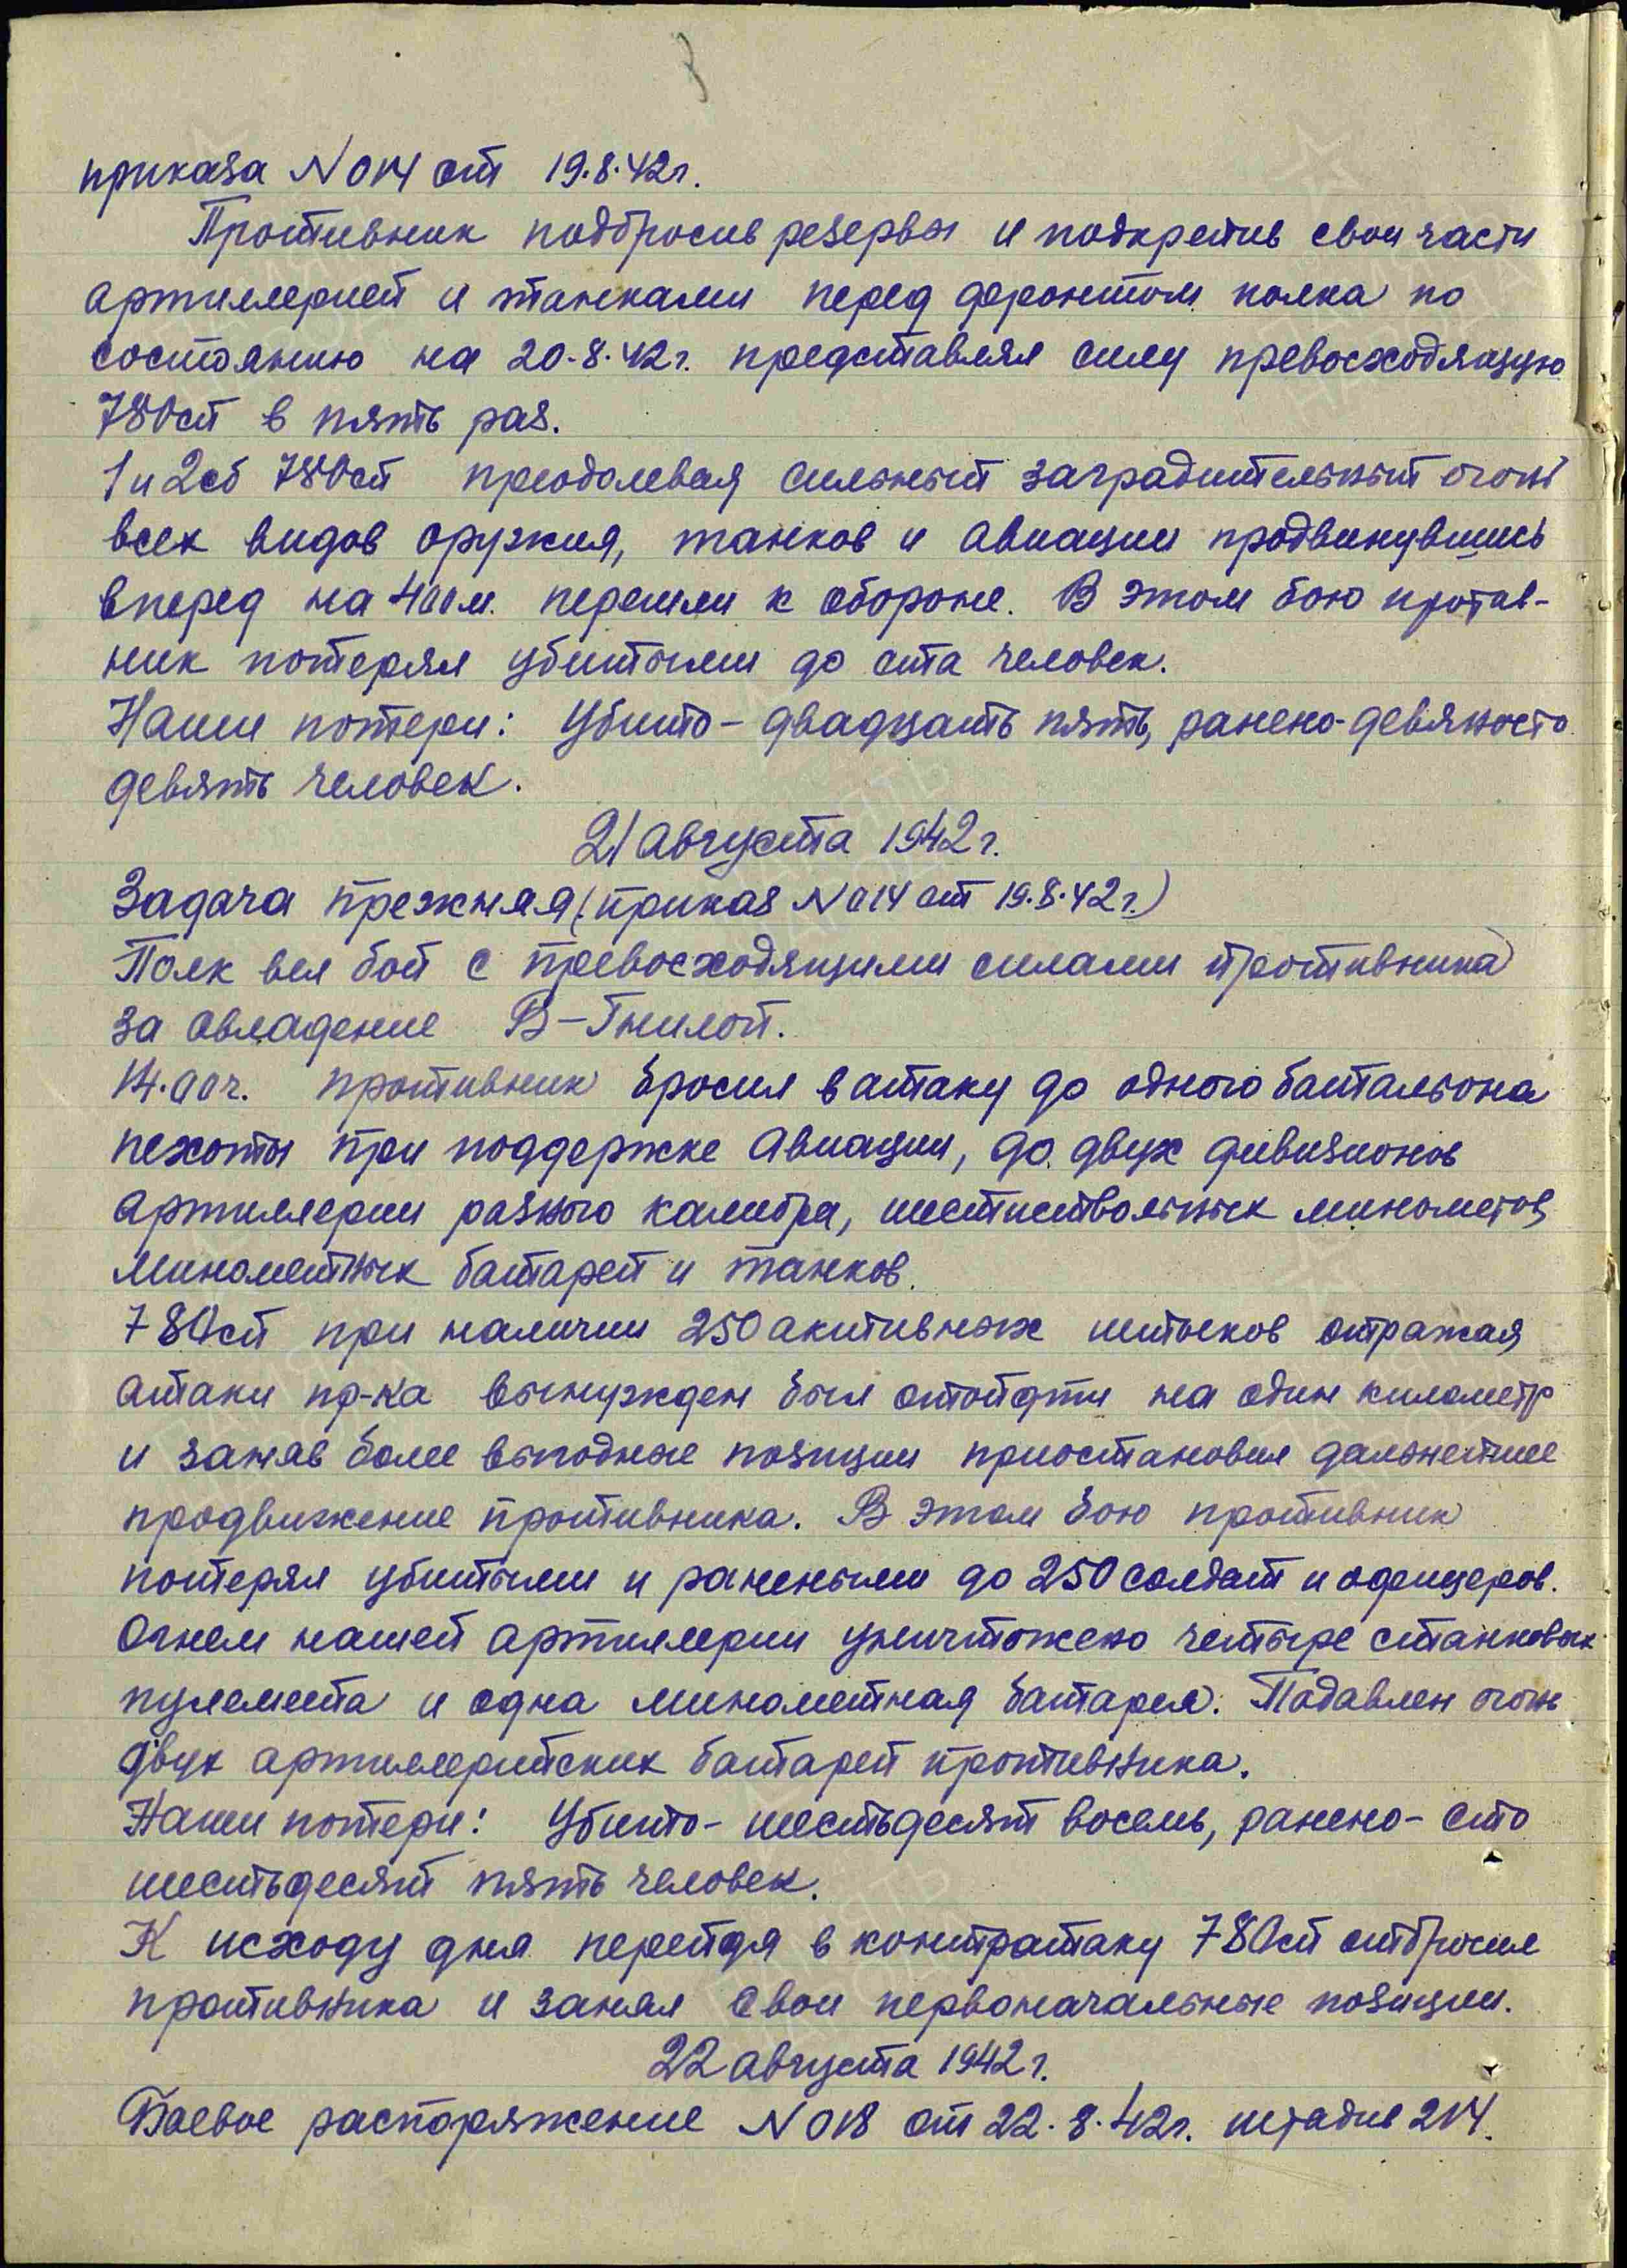 приказа N 014 от 19.8.42г.
Противник подбросив резервы и подкрепив свои части
артиллерией и танками перед фронтом полка по
состоянию на 20.8.42г. представлял силу превосходящую
780сп в пять раз.
1 и 2сб 780сп преодолевая сильный заградительный огонь
всех видов оружия, танков и авиации продвинувшись
вперед на 400м. перешли к обороне. В этом бою против-
ник потерял убитыми до ста человек.
Наши потери: Убито - двадцать пять, ранено - девяносто
девять человек.
21 августа 1942г.
Задача прежняя (приказ N 014 от 19.8.42г.)
Полк вел бой с превосходящими силами противника
за овладение В-Гнилой.
14.00ч. противник бросил в атаку до одного батальона
пехоты при поддержке авиации, до двух дивизионов
артиллерии разного калибра, шестиствольных минометов,
минометных батарей и танков.
780сп при наличии 250 активных штыков отражая
атаки пр-ка вынужден был отойдти на один километр
и заняв более выгодные позиции приостановил дальнейшее
продвижение противника. В этом бою противник
потерял убитыми и ранеными до 250 солдат и офицеров.
Огнем нашей артиллерии уничтожено четыре станковых
пулемета и одна минометная батарея. Подавлен огонь
двух артиллерийских батарей противника.
Наши потери: Убито - шестьдесят восемь, ранено - сто
шестьдесят пять человек.
К исходу дня перейдя в контратаку 780сп отбросил
противника и занял свои первоначальные позиции.
22 августа 1942г.
Боевое распоряжение N 018 от 22.8.42г. штадив 214.